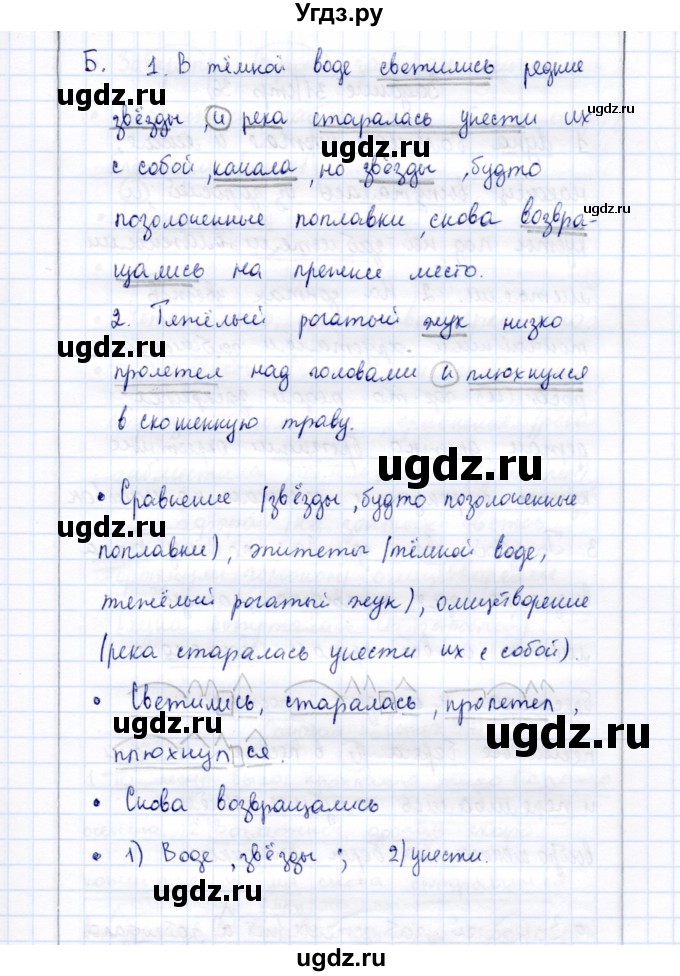 Угдз.ру
Б. 1. В тёмной воде светились редкие
ugdz.ru
звёзды, и река старалась унести их
ugdz.ru
с собой, качала, но звёзды, будто
ugdz.ru
позолоченные поплавки, снова возвра-
щались на прежнее место.
2. Тяжёлый рогатый жук низко
ugdz.ru
ugdz.ru
пролетел над головами и плюхнулся
в скошенную траву.
ugdz.ru
• Сравнение (звёзды, будто позолоченные
ugdz.ru
поплавки), эпитеты (тёмной воде,
тяжёлый рогатый жук), олицетворение
(река старалась унести их с собой).
• Светились, старалась, пролетел,
ugdz.ru
плюхнулся.
ugdz.ru
• Снова возвращались
• 1) Воде, звёзды; 2) унести.
ugdz.ru
ugdz.ru
ugdz.ru